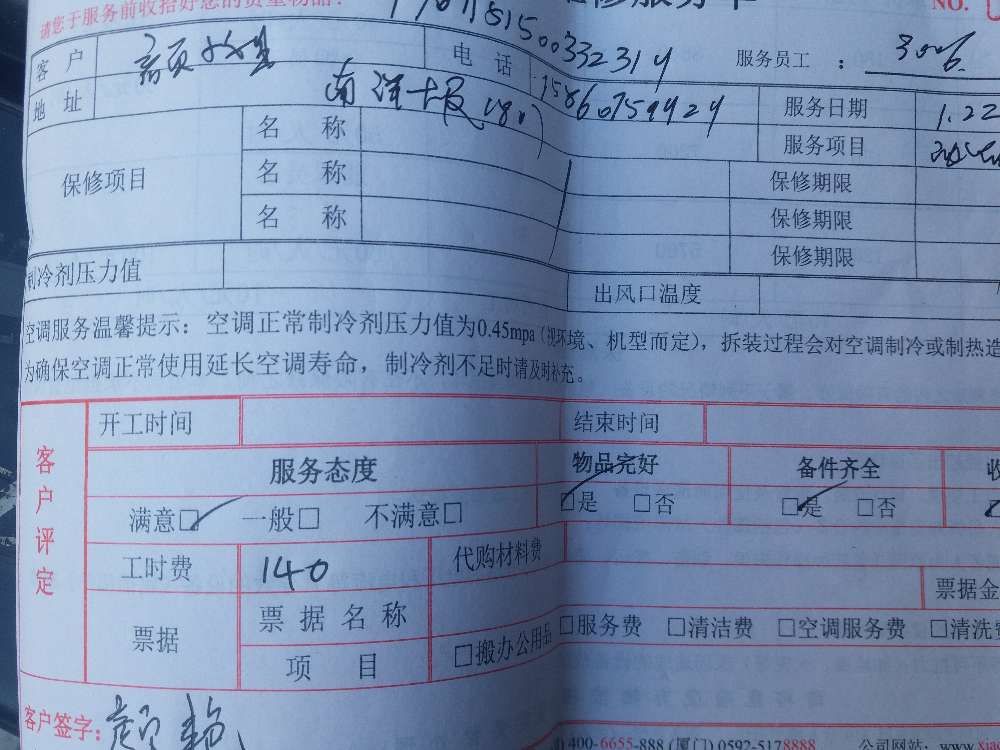 请您于服务前收拾好您的贵重物品！ 修服务卡 NO.
1500332314
客 户 颜 电 话 服务员工 ： 3006
地 址 南洋 15860759424 服务日期 1.22
名 称 服务项目
保修项目 名 称 保修期限
名 称 保修期限
保修期限
制冷剂压力值 出风口温度
空调服务温馨提示：空调正常制冷剂压力值为0.45mpa（视环境、机型而定），拆装过程会对空调制冷或制热造
为确保空调正常使用延长空调寿命，制冷剂不足时请及时补充。
客户评定 开工时间 结束时间
服务态度 物品完好 备件齐全 收
满意□ 一般□ 不满意□ □是 □否 □是 □否
工时费 140 代购材料费
票据 票 据 名 称 票据金
项 目 □搬办公用品 □服务费 □清洁费 □空调服务费 □清洗
客户签字：颜
400-6655-888 (厦门) 0592-5178888 公司网站：www.